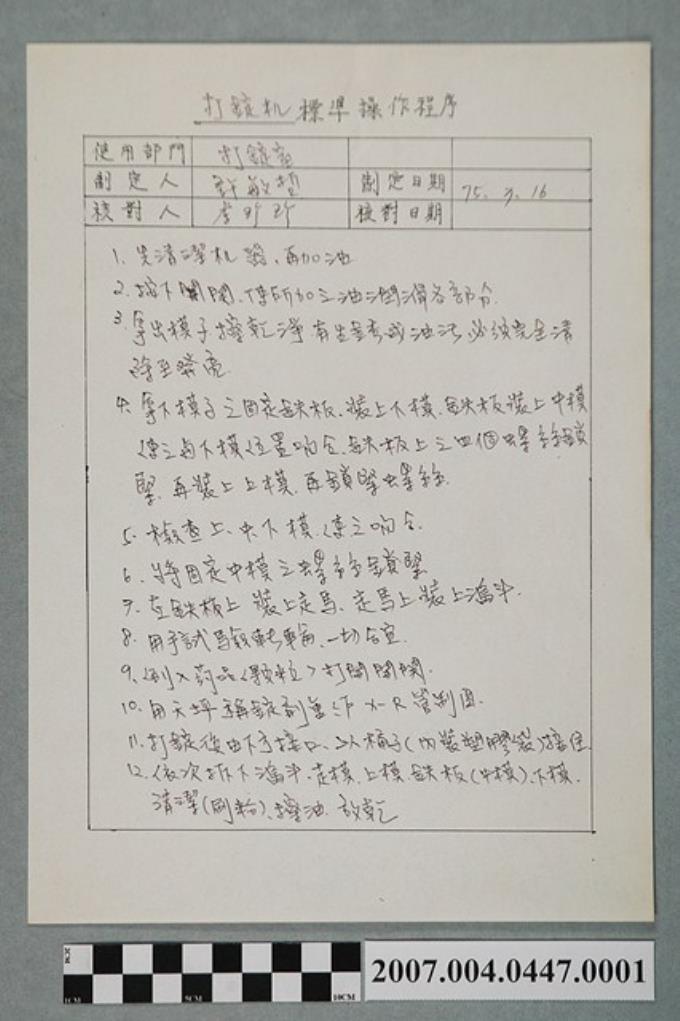 打錠机標準操作程序
使用部門 打錠室
制定人 許敏哲 制定日期 75. 3. 16
核對人 李 核對日期
1. 先清潔机器、再加油
2. 按下開関、使所加之油潤滑各部分.
3. 拿出模子擦乾淨有生銹或油污必須完全清
除至發亮.
4. 拿下模子之固定鉄板、裝上下模、鉄板裝上中模
使之与下模位置吻合、鉄板上之四個螺絲鎖
緊、再裝上上模、再鎖緊螺絲.
5. 檢查上、中下模、使之吻合.
6. 將固定中模之螺絲鎖緊
7. 在鉄板上裝上走馬、走馬上裝上漏斗.
8. 用手試馬達轉輪、一切合宜.
9. 倒入药品<顆粒>打開開関.
10. 用天坪稱錠剂重作X-R管制図.
11. 打錠後由下方接口、以桶子(內裝塑膠袋)接住
12. 依次拆下漏斗、走模、上模、鉄板(中模)、下模、
清潔(刷粉)、擦油、放乾
1CM 5CM 10CM
2CM
2007.004.0447.0001